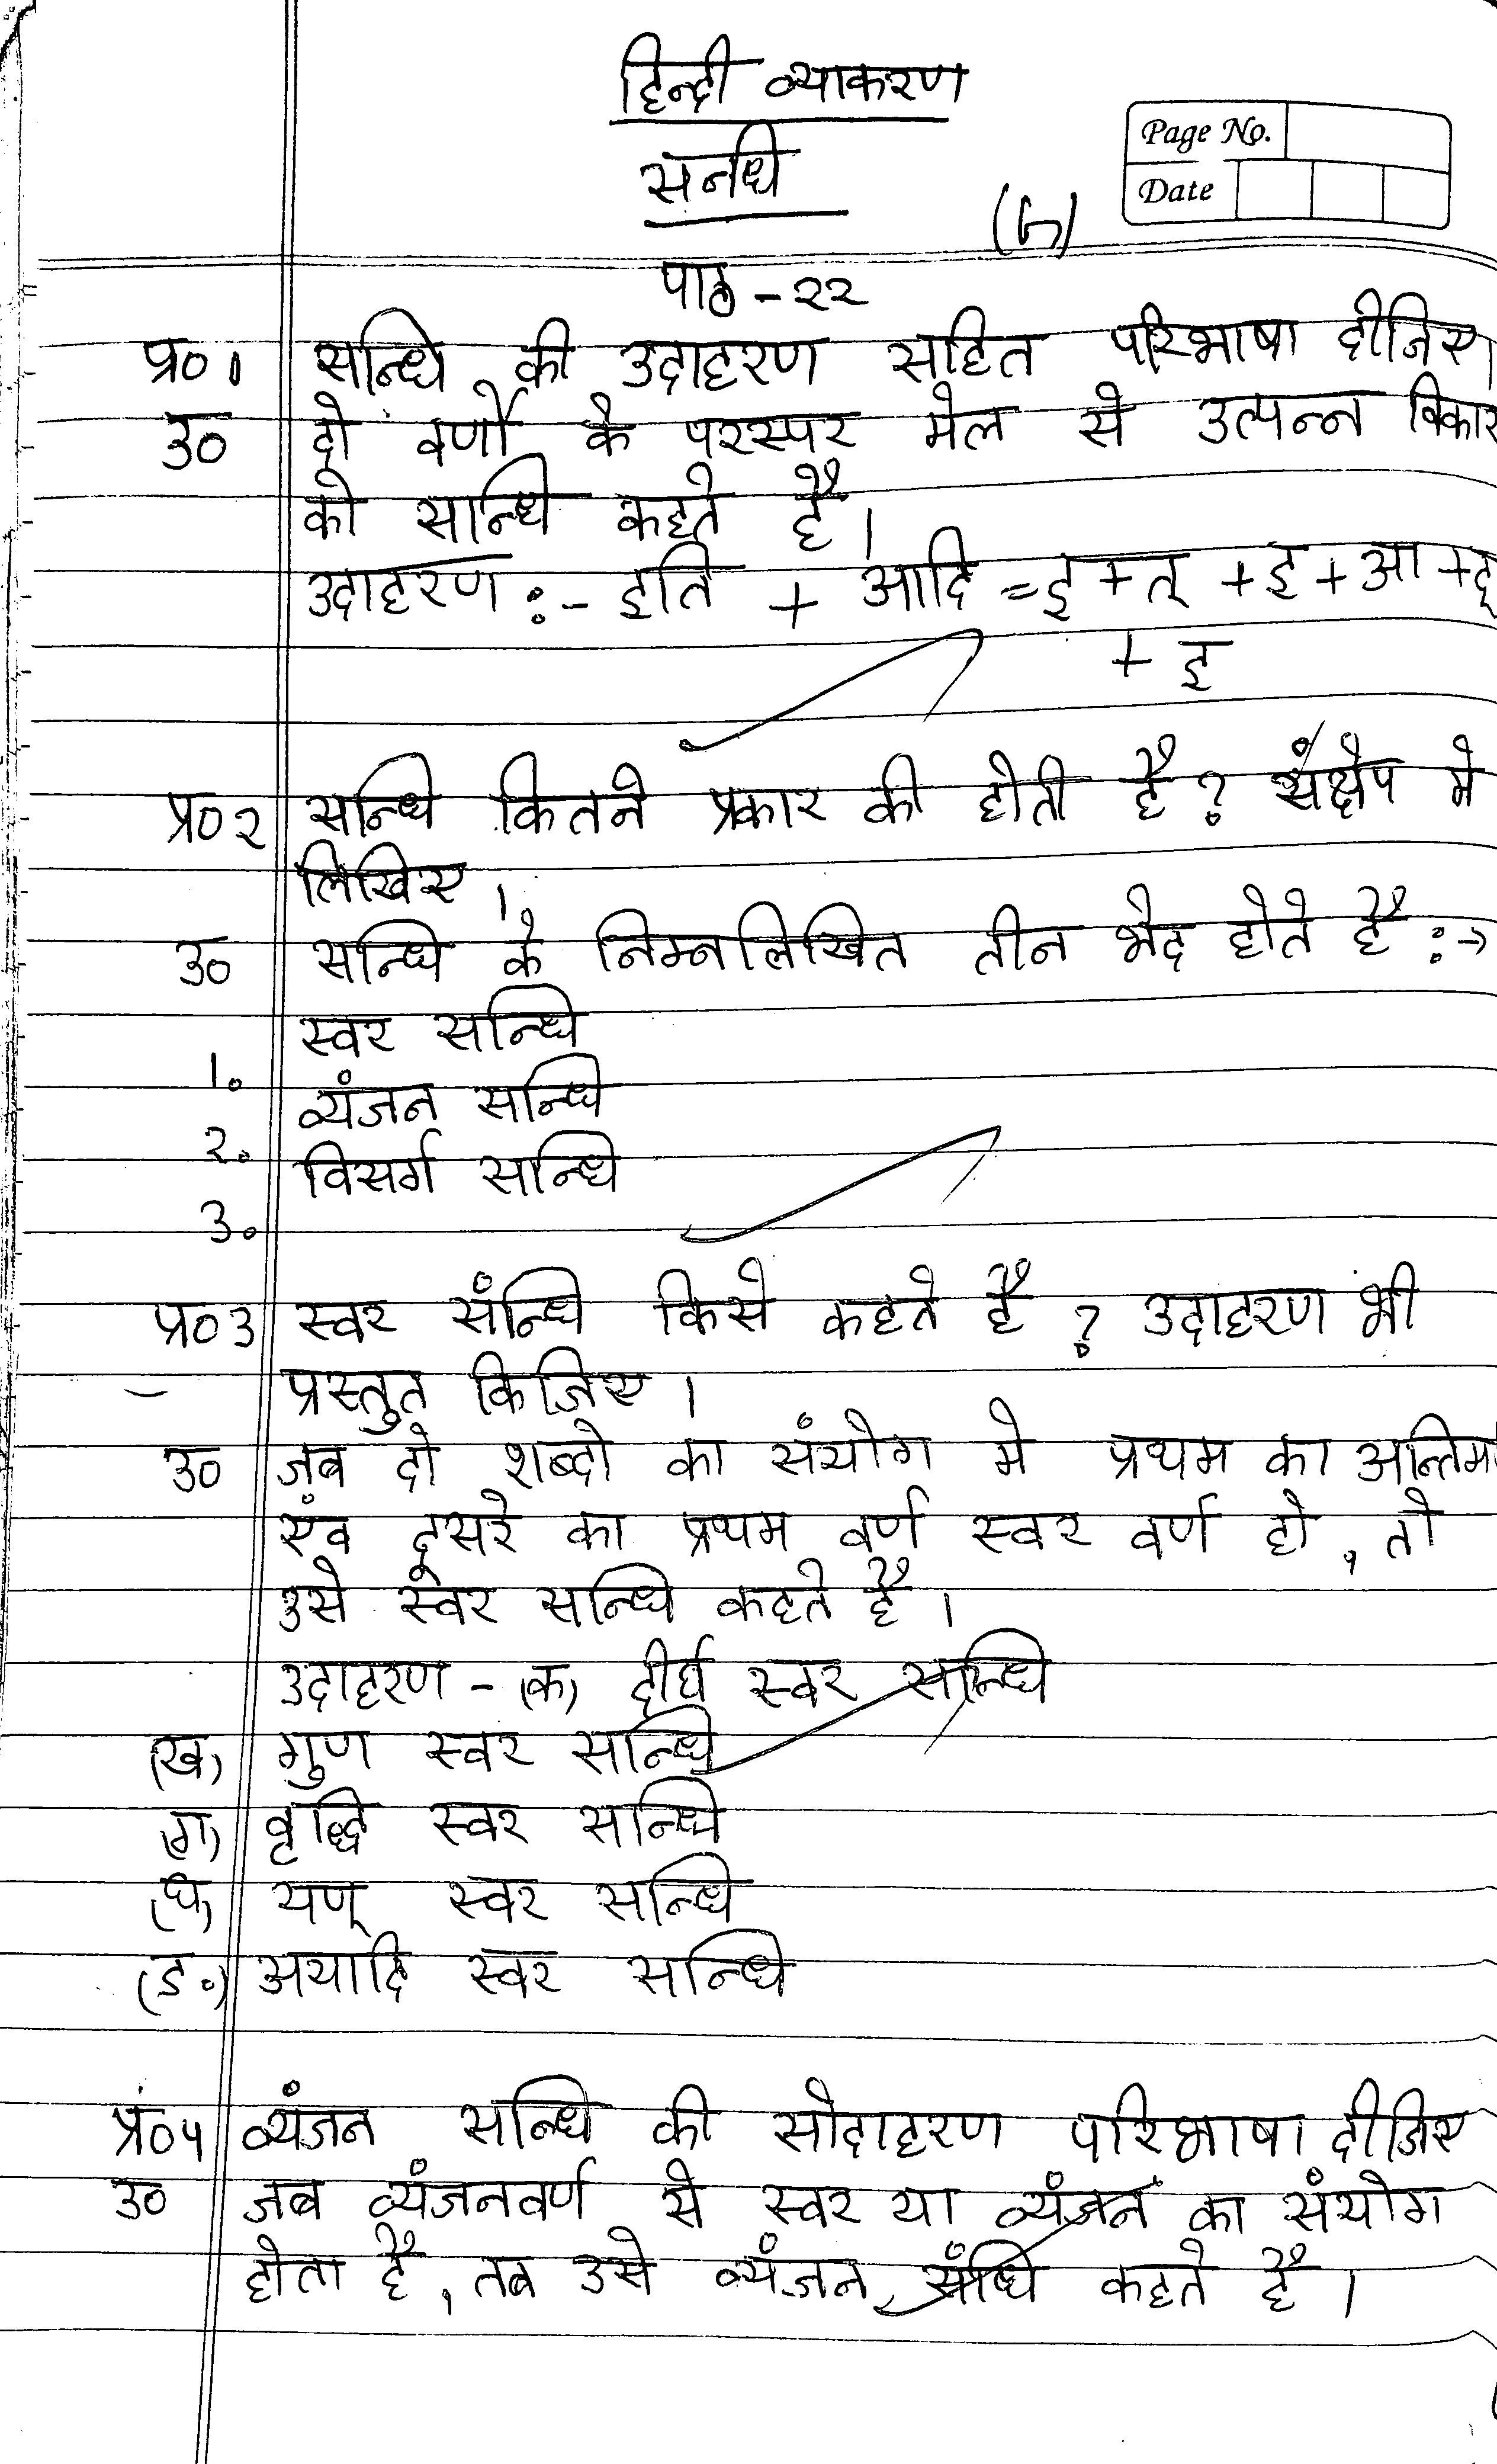 हिन्दी व्याकरण
सन्धि
Page No.
Date
पाठ - २२
प्र० 1 सन्धि की उदाहरण सहित परिभाषा दीजिए।
उ० दो वर्णों के परस्पर मेल से उत्पन्न विकार
को सान्धि कहते है।
उदाहरण :- इति + आदि = इ + त् + इ + आ + द्
+ इ
प्र० २ सन्धि कितने प्रकार की होती है? संक्षेप मे
लिखिए।
उ० सन्धि के निम्नलिखित तीन भेद होते है :→
1. स्वर सन्धि
2. व्यंजन सन्धि
3. विसर्ग सन्धि
प्र० ३ स्वर संन्धि किसे कहते है? उदाहरण भी
प्रस्तुत किजिए।
उ० जब दो शब्दो का संयोग मे प्रथम का अन्तिम
एंव दूसरे का प्रथम वर्ण स्वर वर्ण हो, तो
उसे स्वर सन्धि कहते है।
उदाहरण - (क) दीर्घ स्वर सन्धि
(ख) गुण स्वर सन्धि
(ग) वृद्धि स्वर सन्धि
(घ) यण् स्वर सन्धि
(ड.) अयादि स्वर सन्धि
प्र० ५ व्यंजन सन्धि की सोदाहरण परिभाषा दीजिए
उ० जब व्यंजनवर्ण से स्वर या व्यंजन का संयोग
होता है, तब उसे व्यंजन संधि कहते है।